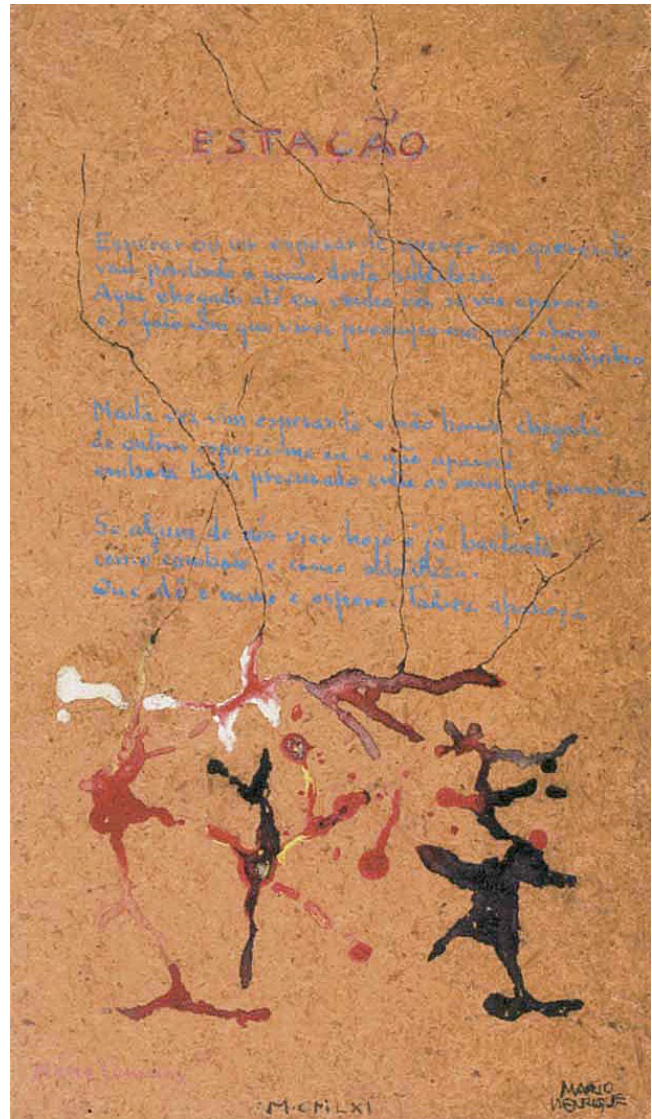 ESTAÇÃO
Esperar ou vir esperar-te querer ou querer-te
vou perdendo a noção desta subtileza
Aqui chegado até eu venho ver se me apareço
e o fato com que virei preocupa-me pois chove
miudinho
Muita vez vim esperar-te e não houve chegada
de outras esperei-me eu e não apareci
embora bem procurado entre os mais que passavam
Se algum de nós vier hoje é já bastante
como comboio e como subtileza
Que dê o nome e espere. Talvez apareça
M·CM·LXI
MARIO
HENRIQUE